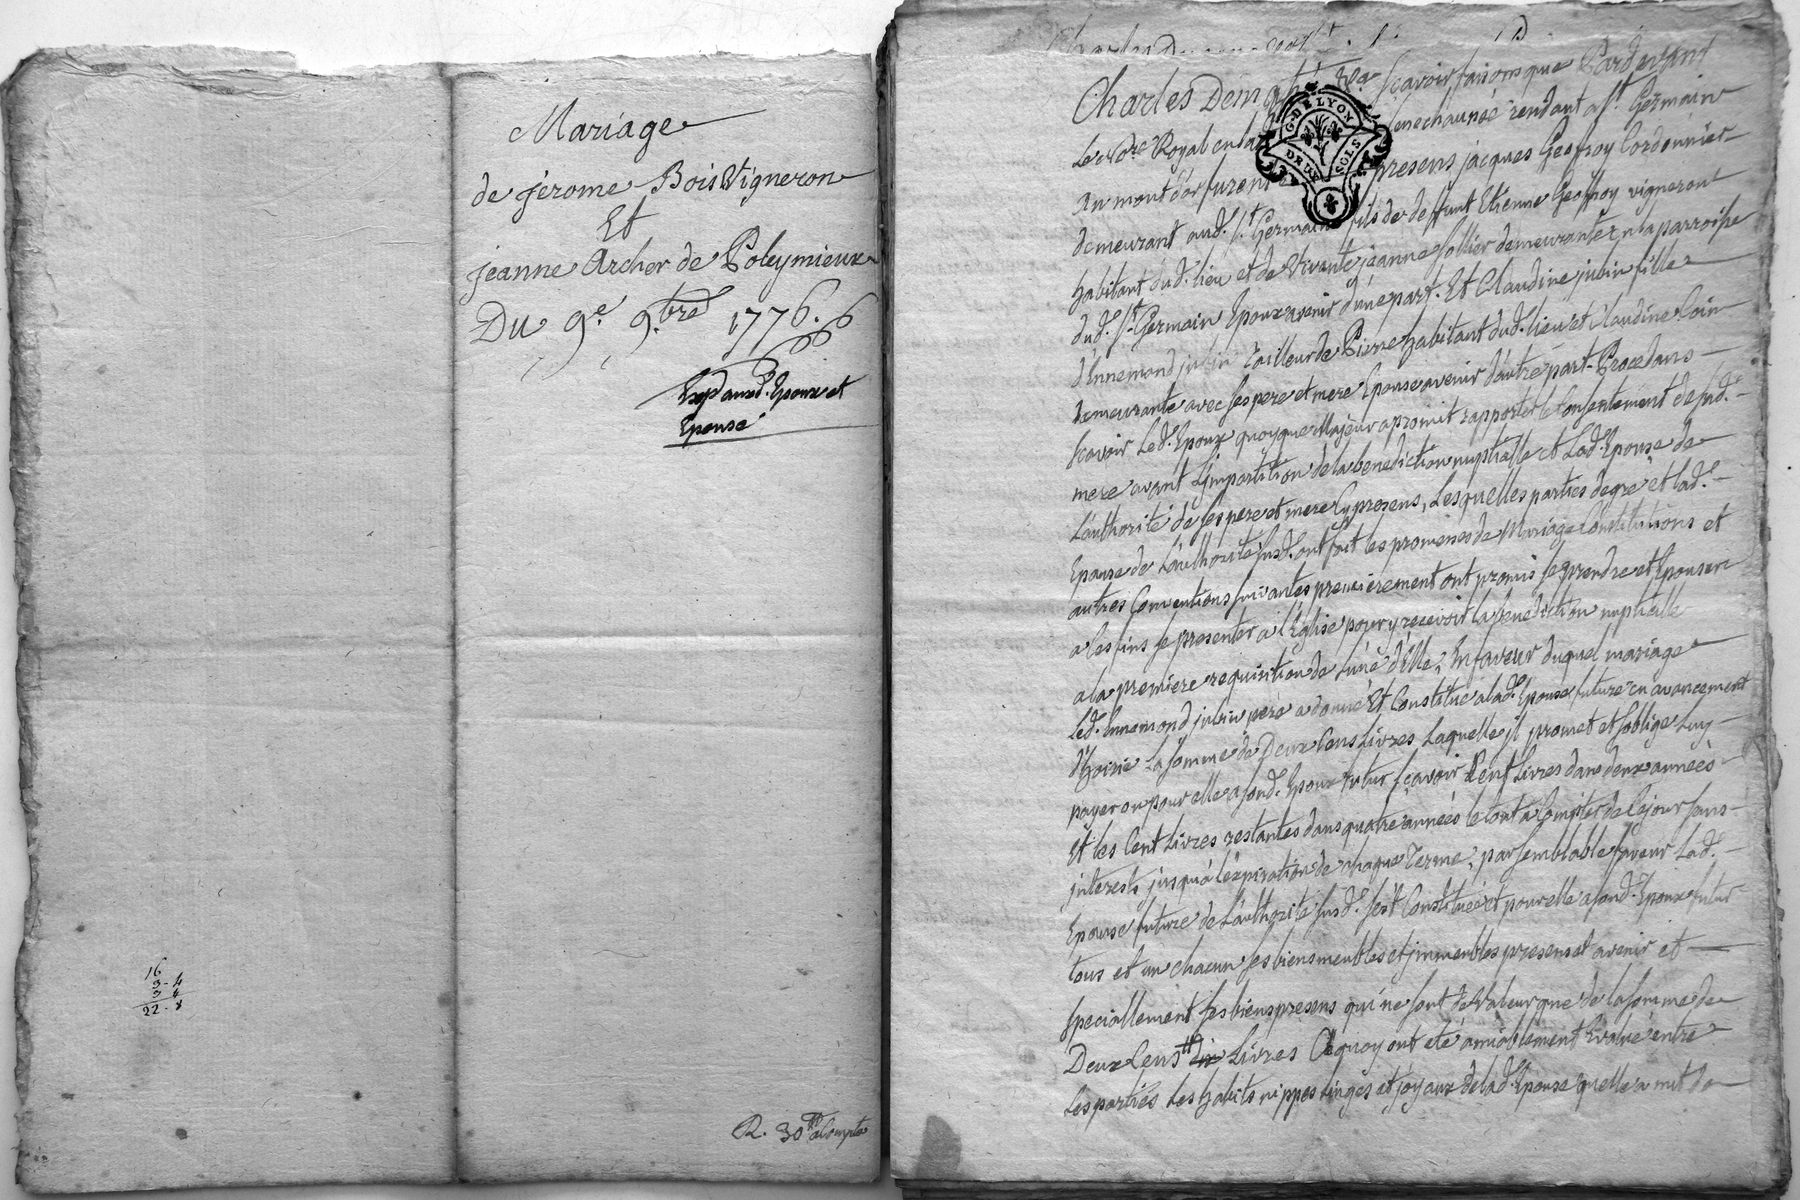 Mariage
de jérome Bois Vigneron
Et
jeanne Archer de Poleymieux
Du 9e 9.bre 1776.
Exp.d aux d. Epoux et
Epouse
16
3 - 4
3 4
22 - 8
R. 30 # a Compte
Charles Dem Scavoir faisons que Pardevant
Le No.re Royal en la Senechaussée residant a St. Germain
au mont d'or furent presens jacques Geofroy Cordonnier
demeurant aud. St. Germain fils de deffunt Etienne Geofroy vigneron
habitant dud. lieu et de Vivante jeanne follier demeurante En la parroisse
dud. St. Germain Epoux avenir d'une part. Et Claudine jubin fille
d'Ennemond jubin Tailleur de Pierre habitant dud. lieu et Claudine Coin
demeurante avec ses pere et mere Epouse avenir d'autre part. Procedans
scavoir Led. Epoux quoyque Majeur a promit rapporter le Consentement de sad.
mere avant L'impartition de la benediction nuptialle et Lad. Epouse de
L'authorité de ses pere et mere Cy presens, Lesquelles parties de gré et lad.
Epouse de L'authorité susd. ont fait les promesses de Mariage Constitutions et
autres Conventions suivantes premierement ont promis se prendre et Epouser
a les fins se presenter a l'Eglise pour y recevoir la benediction nuptialle
a la premiere requisition de L'une d'Elle, En faveur duquel mariage
Led. Ennemond jubin pere a donné Et Constitué a lad. Epouse future en avancement
d'hoirie La somme de Deux Cens Livres Laquelle jl promet et s'oblige Luy
payer ou pour elle a sond. Epoux futur sçavoir Cent Livres dans deux années
Et les Cent Livres restantes dans quatre années le tout a Compter de Ce jour sans
jnterests jusqu'a l'expiration de chaque Terme, par semblable faveur Lad.
Epouse future de L'authorité susd. s'est Constituée et pour elle a sond. Epoux futur
tous et un chacun ses biens meubles et jmmeubles presens et avenir et
specialement ses biens presens qui ne sont de Valeur que de la somme de
Deux Cens Livres a quoy ont eté amiablement Evalué entre
Les parties Les habits nippes linges et joyaux de lad. Epouse quelle a mit do